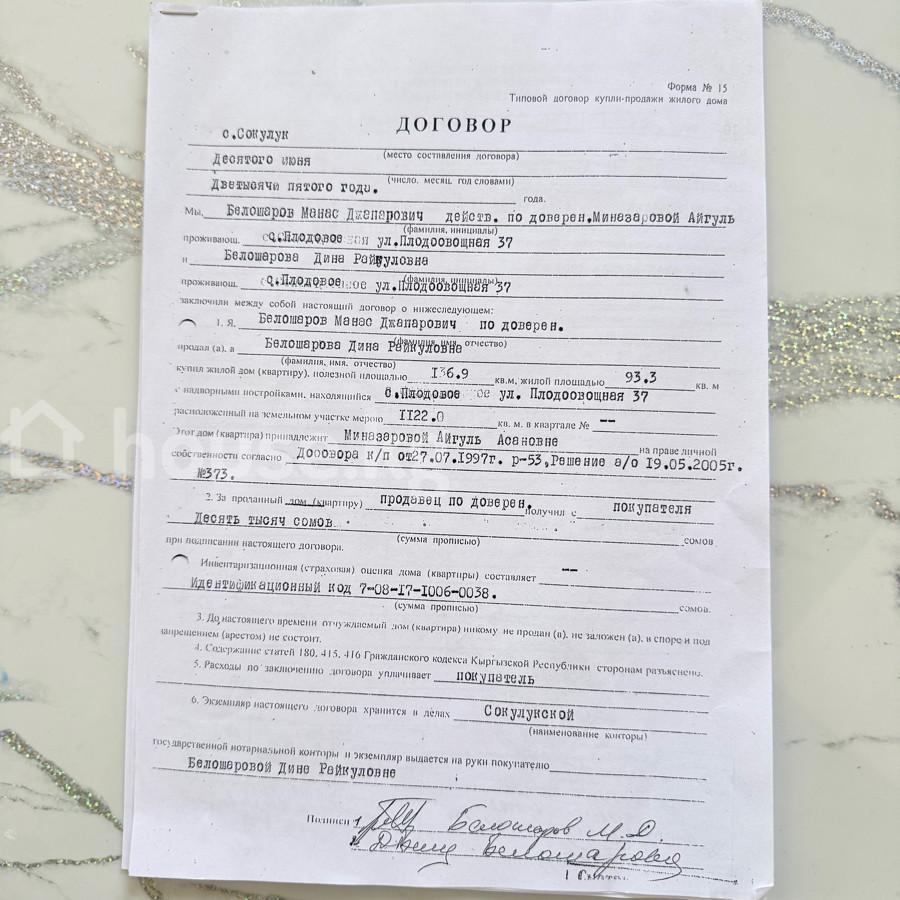 Форма № 15
Типовой договор купли-продажи жилого дома
ДОГОВОР
с.Сокулук
(место составления договора)
Десятого июня
(число, месяц, год словами)
Дветысячи пятого года.
года.
Мы, Белошаров Манас Джапарович действ. по доверен.Миназаровой Айгуль
(фамилия, инициалы)
проживающ. с.Плодовое ул.Плодоовощная 37
и Белошарова Дина Райкуловна
(фамилия, инициалы)
проживающ. с.Плодовое ул.Плодоовощная 37
заключили между собой настоящий договор о нижеследующем:
1. Я, Белошаров Манас Джапарович по доверен.
(фамилия, имя, отчество)
продал (а), а Белошарова Дина Райкуловна
(фамилия, имя, отчество)
купил жилой дом (квартиру), полезной площадью I36.9 кв.м, жилой площадью 93.3 кв. м
с надворными постройками, находящийся с.Плодовое ул. Плодоовощная 37
расположенный на земельном участке мерою II22.0 кв. м. в квартале № --
Этот дом (квартира) принадлежит Миназаровой Айгуль Асановне на праве личной
собственности согласно Договора к/п от27.07.1997г. р-53,Решение а/о 19.05.2005г.
№373.
2. За проданный дом (квартиру) продавец по доверен. получил с покупателя
Десять тысяч сомов сомов
(сумма прописью)
при подписании настоящего договора.
Инвентаризационная (страховая) оценка дома (квартиры) составляет --
Идентификационный код 7-08-17-1006-0038. сомов.
(сумма прописью)
3. До настоящего времени отчуждаемый дом (квартира) никому не продан (а), не заложен (а), в споре и под
запрещением (арестом) не состоит.
4. Содержание статей 180, 415, 416 Гражданского кодекса Кыргызской Республики сторонам разъяснено.
5. Расходы по заключению договора уплачивает покупатель
6. Экземпляр настоящего договора хранится в делах Сокулукской
(наименование конторы)
государственной нотариальной конторы и экземпляр выдается на руки покупателю
Белошаровой Дине Райкуловне
Подписи 1 Белошаров М.Д.
Дина Белошарова